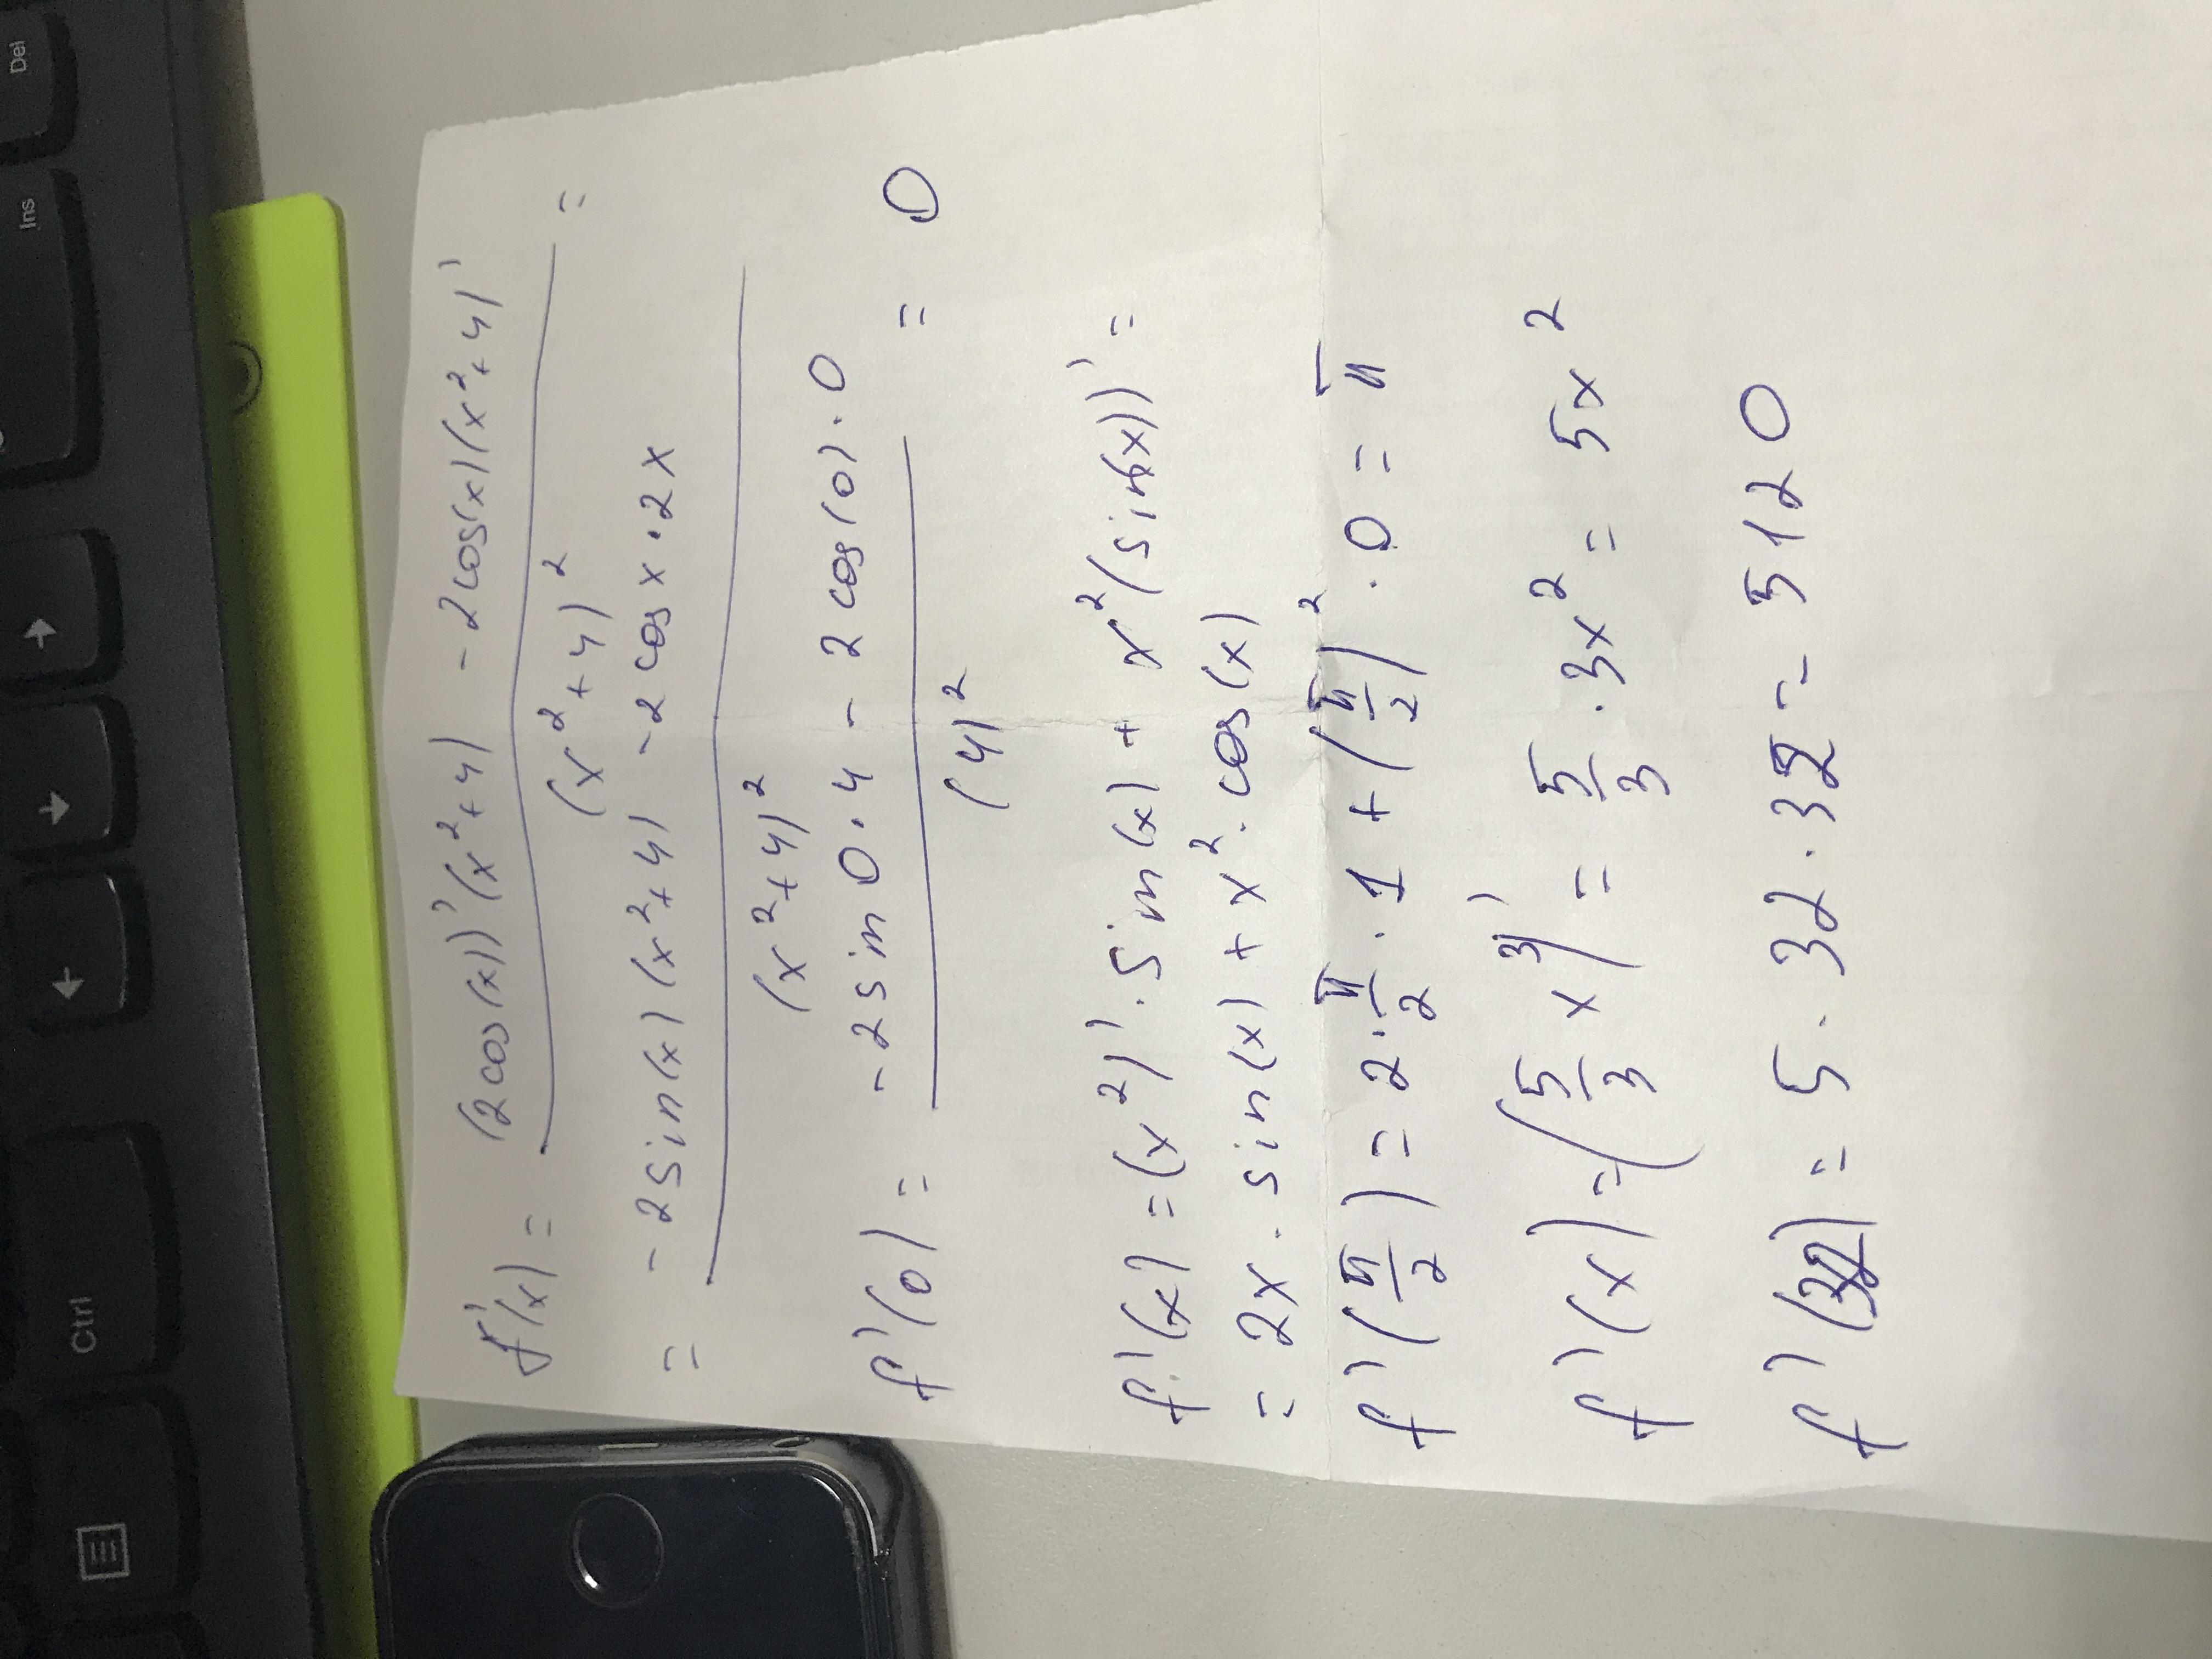 f'(x) = (2cos(x))'(x²+4) - 2cos(x)(x²+4)' =
(x²+4)²
= -2sin(x)(x²+4) - 2cosx·2x
(x²+4)²
f'(0) = -2sin0·4 - 2cos(0)·0 = 0
(4)²
f'(x) = (x²)'·sin(x) + x²(sin(x))' =
= 2x·sin(x) + x²·cos(x)
f'(π/2) = 2·π/2·1 + (π/2)²·0 = π
f'(x) = (5/3 x³)' = 5/3·3x² = 5x²
f'(32) = 5·32·32 = 5120
Del
Ins
Ctrl